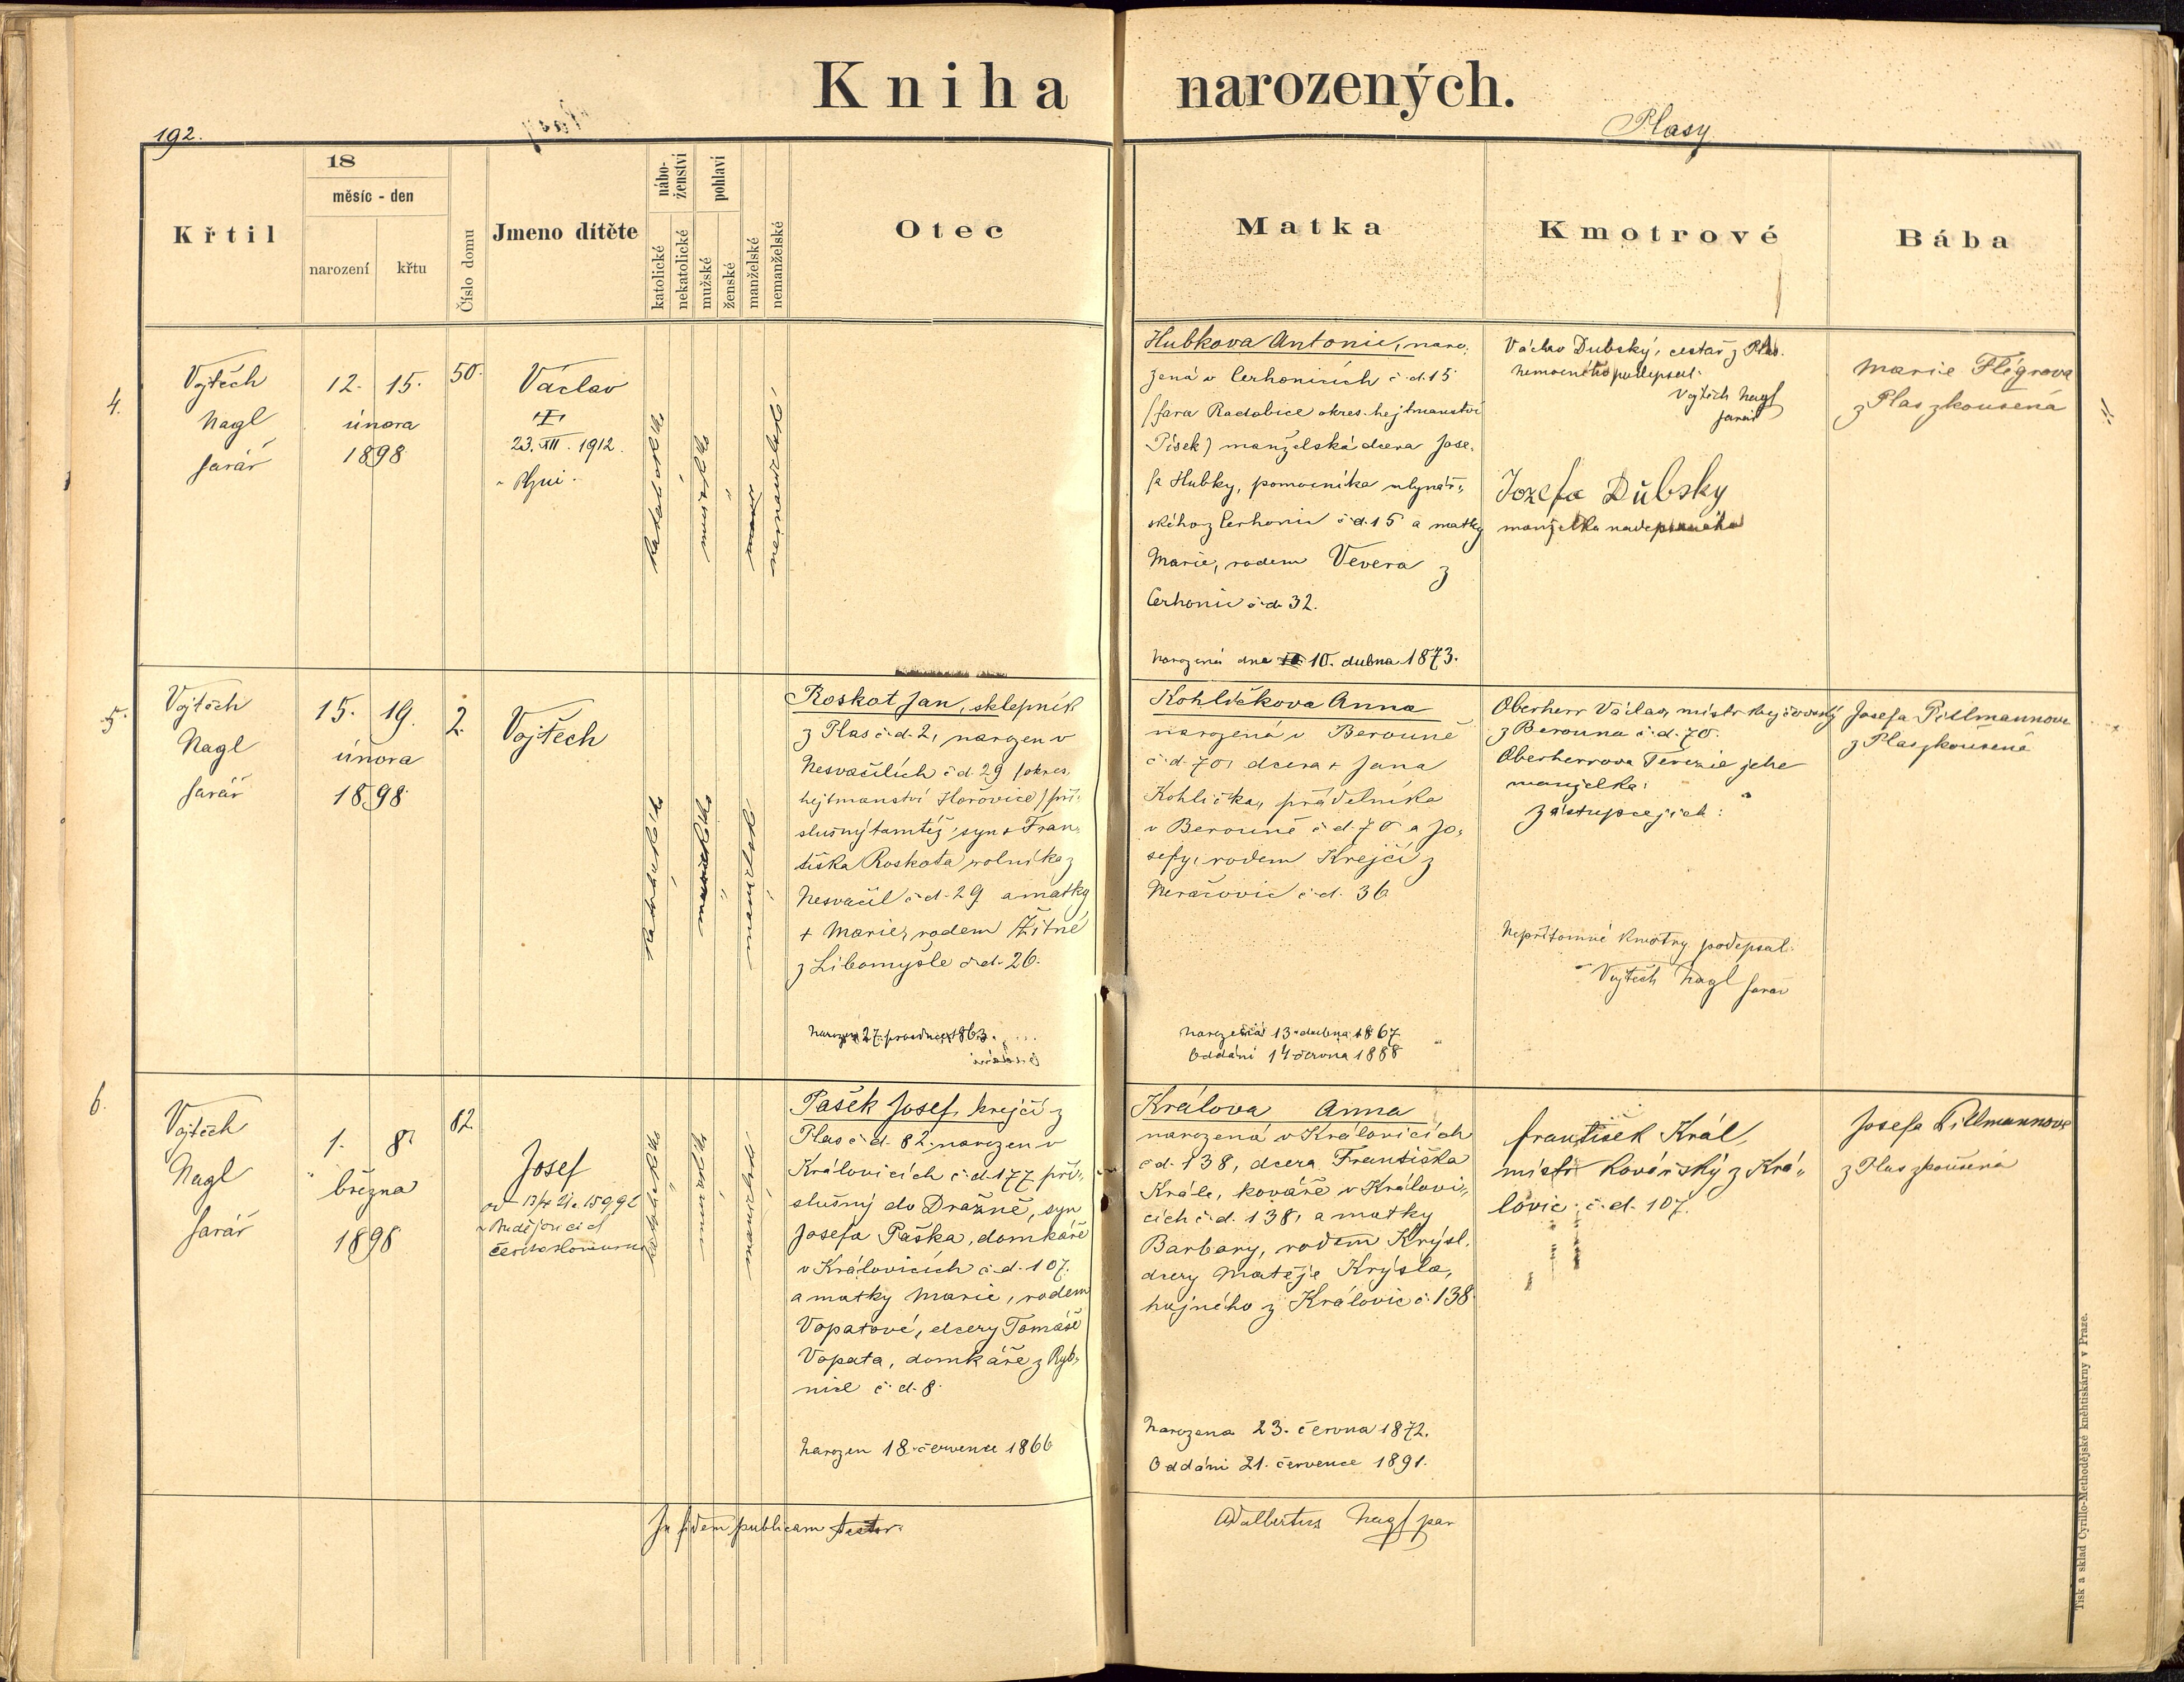 Kniha narozených.
192.
Plasy
18
měsíc - den
Křtil
narození
křtu
Číslo domu
Jmeno dítěte
nábo-
ženství
katolické
nekatolické
pohlaví
mužské
ženské
manželské
nemanželské
Otec
Matka
Kmotrové
Bába
4.
Vojtěch
Nagl
farář
12. 15.
února
1898
50.
Václav
23. XII. 1912.
Plzni.
katolické
mužské
nemanželské
Hubkova Antonie, naro-
zená v Cerhonicích č.d. 15
(fara Radobice okres. hejtmanství
Písek) manželská dcera Jose-
fa Hubky, pomocníka mlynář-
ského z Cerhonic č.d. 15 a matky
Marie, rodem Vevera z
Cerhonic č.d. 32.
Narozená dne 10. dubna 1873.
Václav Dubský, cestář z Plas.
nemocného podepsal:
Vojtěch Nagl
farář
Jozefa Důbsky
manželka nadepsaného
Marie Flégrova
z Plas zkoušená
5.
Vojtěch
Nagl
farář
15. 19.
února
1898
2.
Vojtěch
katolické
mužské
manželské
Roskot Jan, sklepník
z Plas č.d. 2, narozen v
Nesvačilích č.d. 29 (okres.
hejtmanství Hořovice) pří-
slušný tamtéž, syn + Fran-
tiška Roskota rolníka z
Nesvačil č.d. 29 a matky
+ Marie, rodem Žitné
z Libomyšle č.d. 26.
Narozen 27. prosince 1863.
Kohlíčkova Anna
narozená v Berouně
č.d. 70, dcera + Jana
Kohlíčka, přádelníka
v Berouně č.d. 70 a Jo-
sefy, rodem Krejčí z
Neražovic č.d. 36
Narozená 13. dubna 1867
Oddáni 14 června 1888
Oberherr Václav, mistr krejčovský
z Berouna č.d. 70.
Oberherrova Terezie jeho
manželka:
zástupce jich:
Nepřítomné kmotry podepsal:
Vojtěch Nagl farář
Josefa Pillmannova
z Plas zkoušená
6.
Vojtěch
Nagl
farář
1. 8.
března
1898
82.
Josef
katolické
mužské
manželské
Pašek Josef, krejčí z
Plas č.d. 82. narozen v
Královicích č.d. 177 pří-
slušný do Dražně, syn
Josefa Paška, domkáře
v Královicích č.d. 107.
a matky Marie, rodem
Vopatové, dcery Tomáše
Vopata, domkáře z Ryb-
nice č.d. 8.
Narozen 18. července 1866
Králova Anna
narozená v Královicích
č.d. 138, dcera Františka
Krále, kováře v Královi-
cích č.d. 138, a matky
Barbary, rodem Krýsl.
dcery Matěje Krýsla,
hajného z Královic č. 138.
Narozena 23. června 1872.
Oddáni 21. července 1891.
František Král,
mistr kovářský z Krá-
lovic č.d. 107.
Josefa Pillmannova
z Plas zkoušená
In fidem publicam testor.
Adalbertus Nagl par
Tisk a sklad Cyrillo-Methodějské kněhtiskárny v Praze.